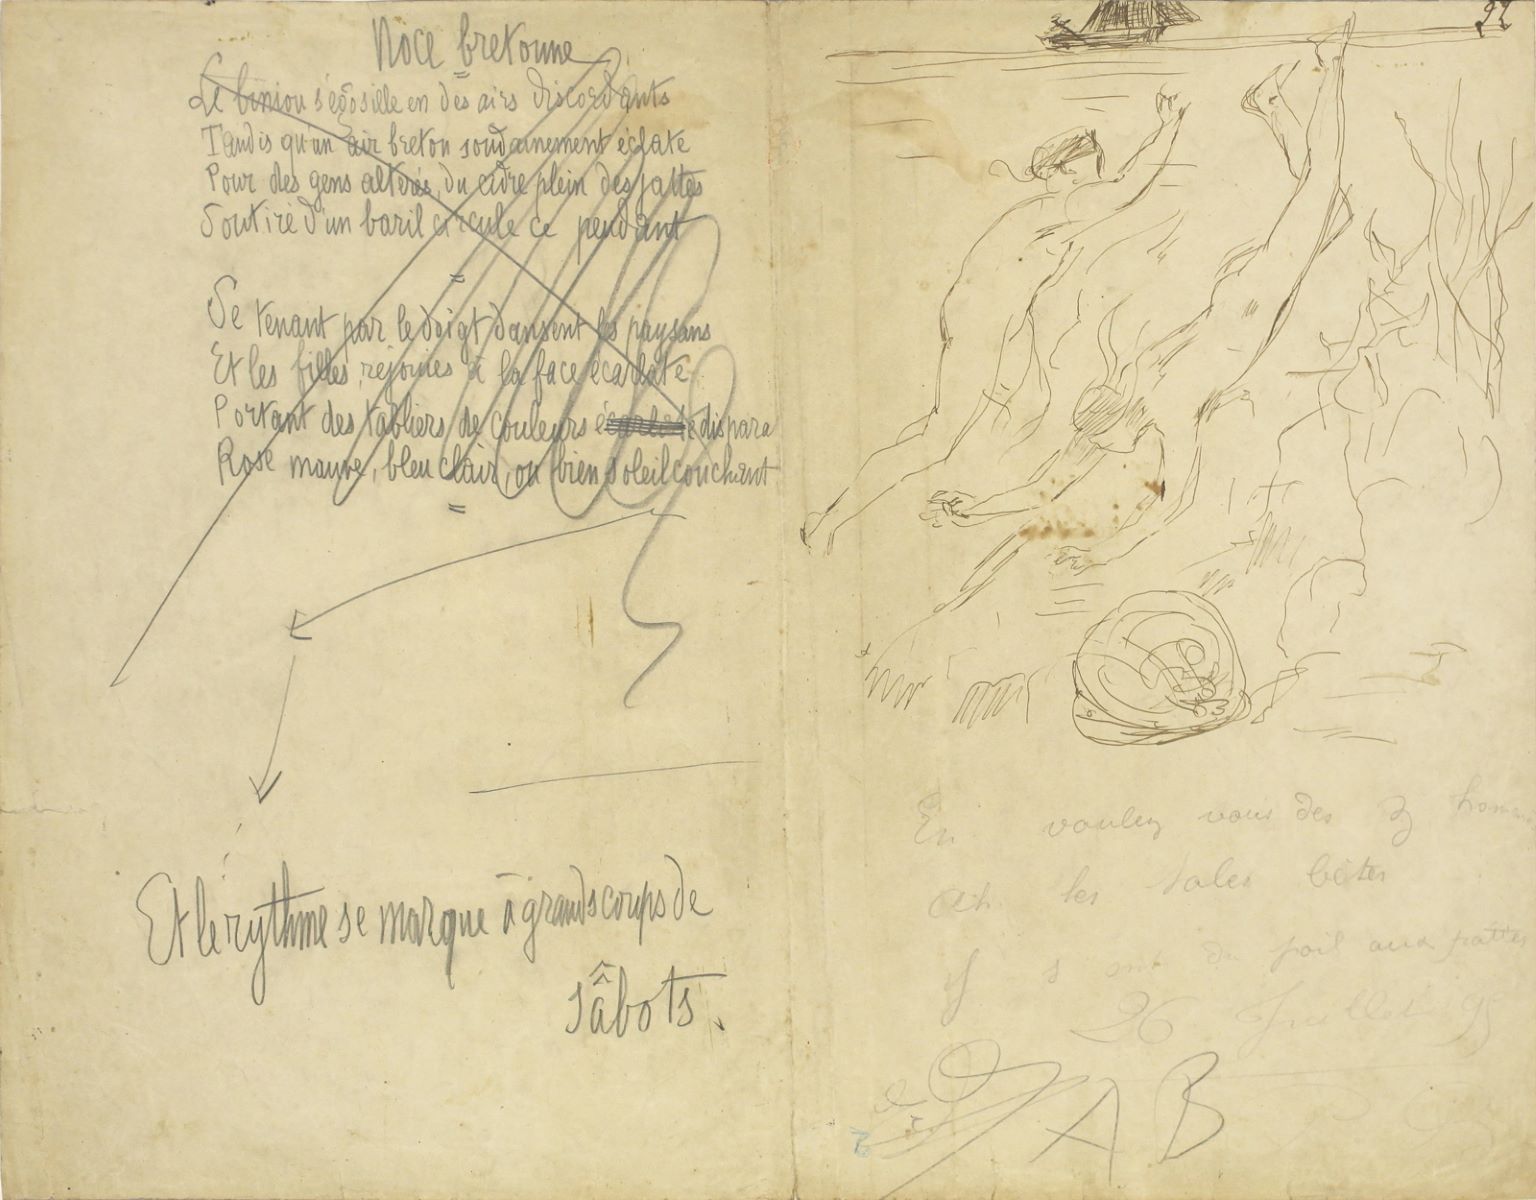 Noce bretonne
Le biniou s'égosille en des airs discordants
Tandis qu'un air breton soudainement éclate
Pour des gens altérés, du cidre plein des jattes
Soutiré d'un baril circule ce pendant
Se tenant par le doigt dansent les paysans
Et les filles, rejouies à la face écarlate
Portant des tabliers de couleurs écarlate dispara
Rose mauve, bleu clair, ou bien soleil couchant
Et le rythme se marque à grands coups de
sâbots.
92
En voulez vous des z homards
Ah les sales bêtes
Ils ont du poil aux pattes
26 Juillet 95
AB